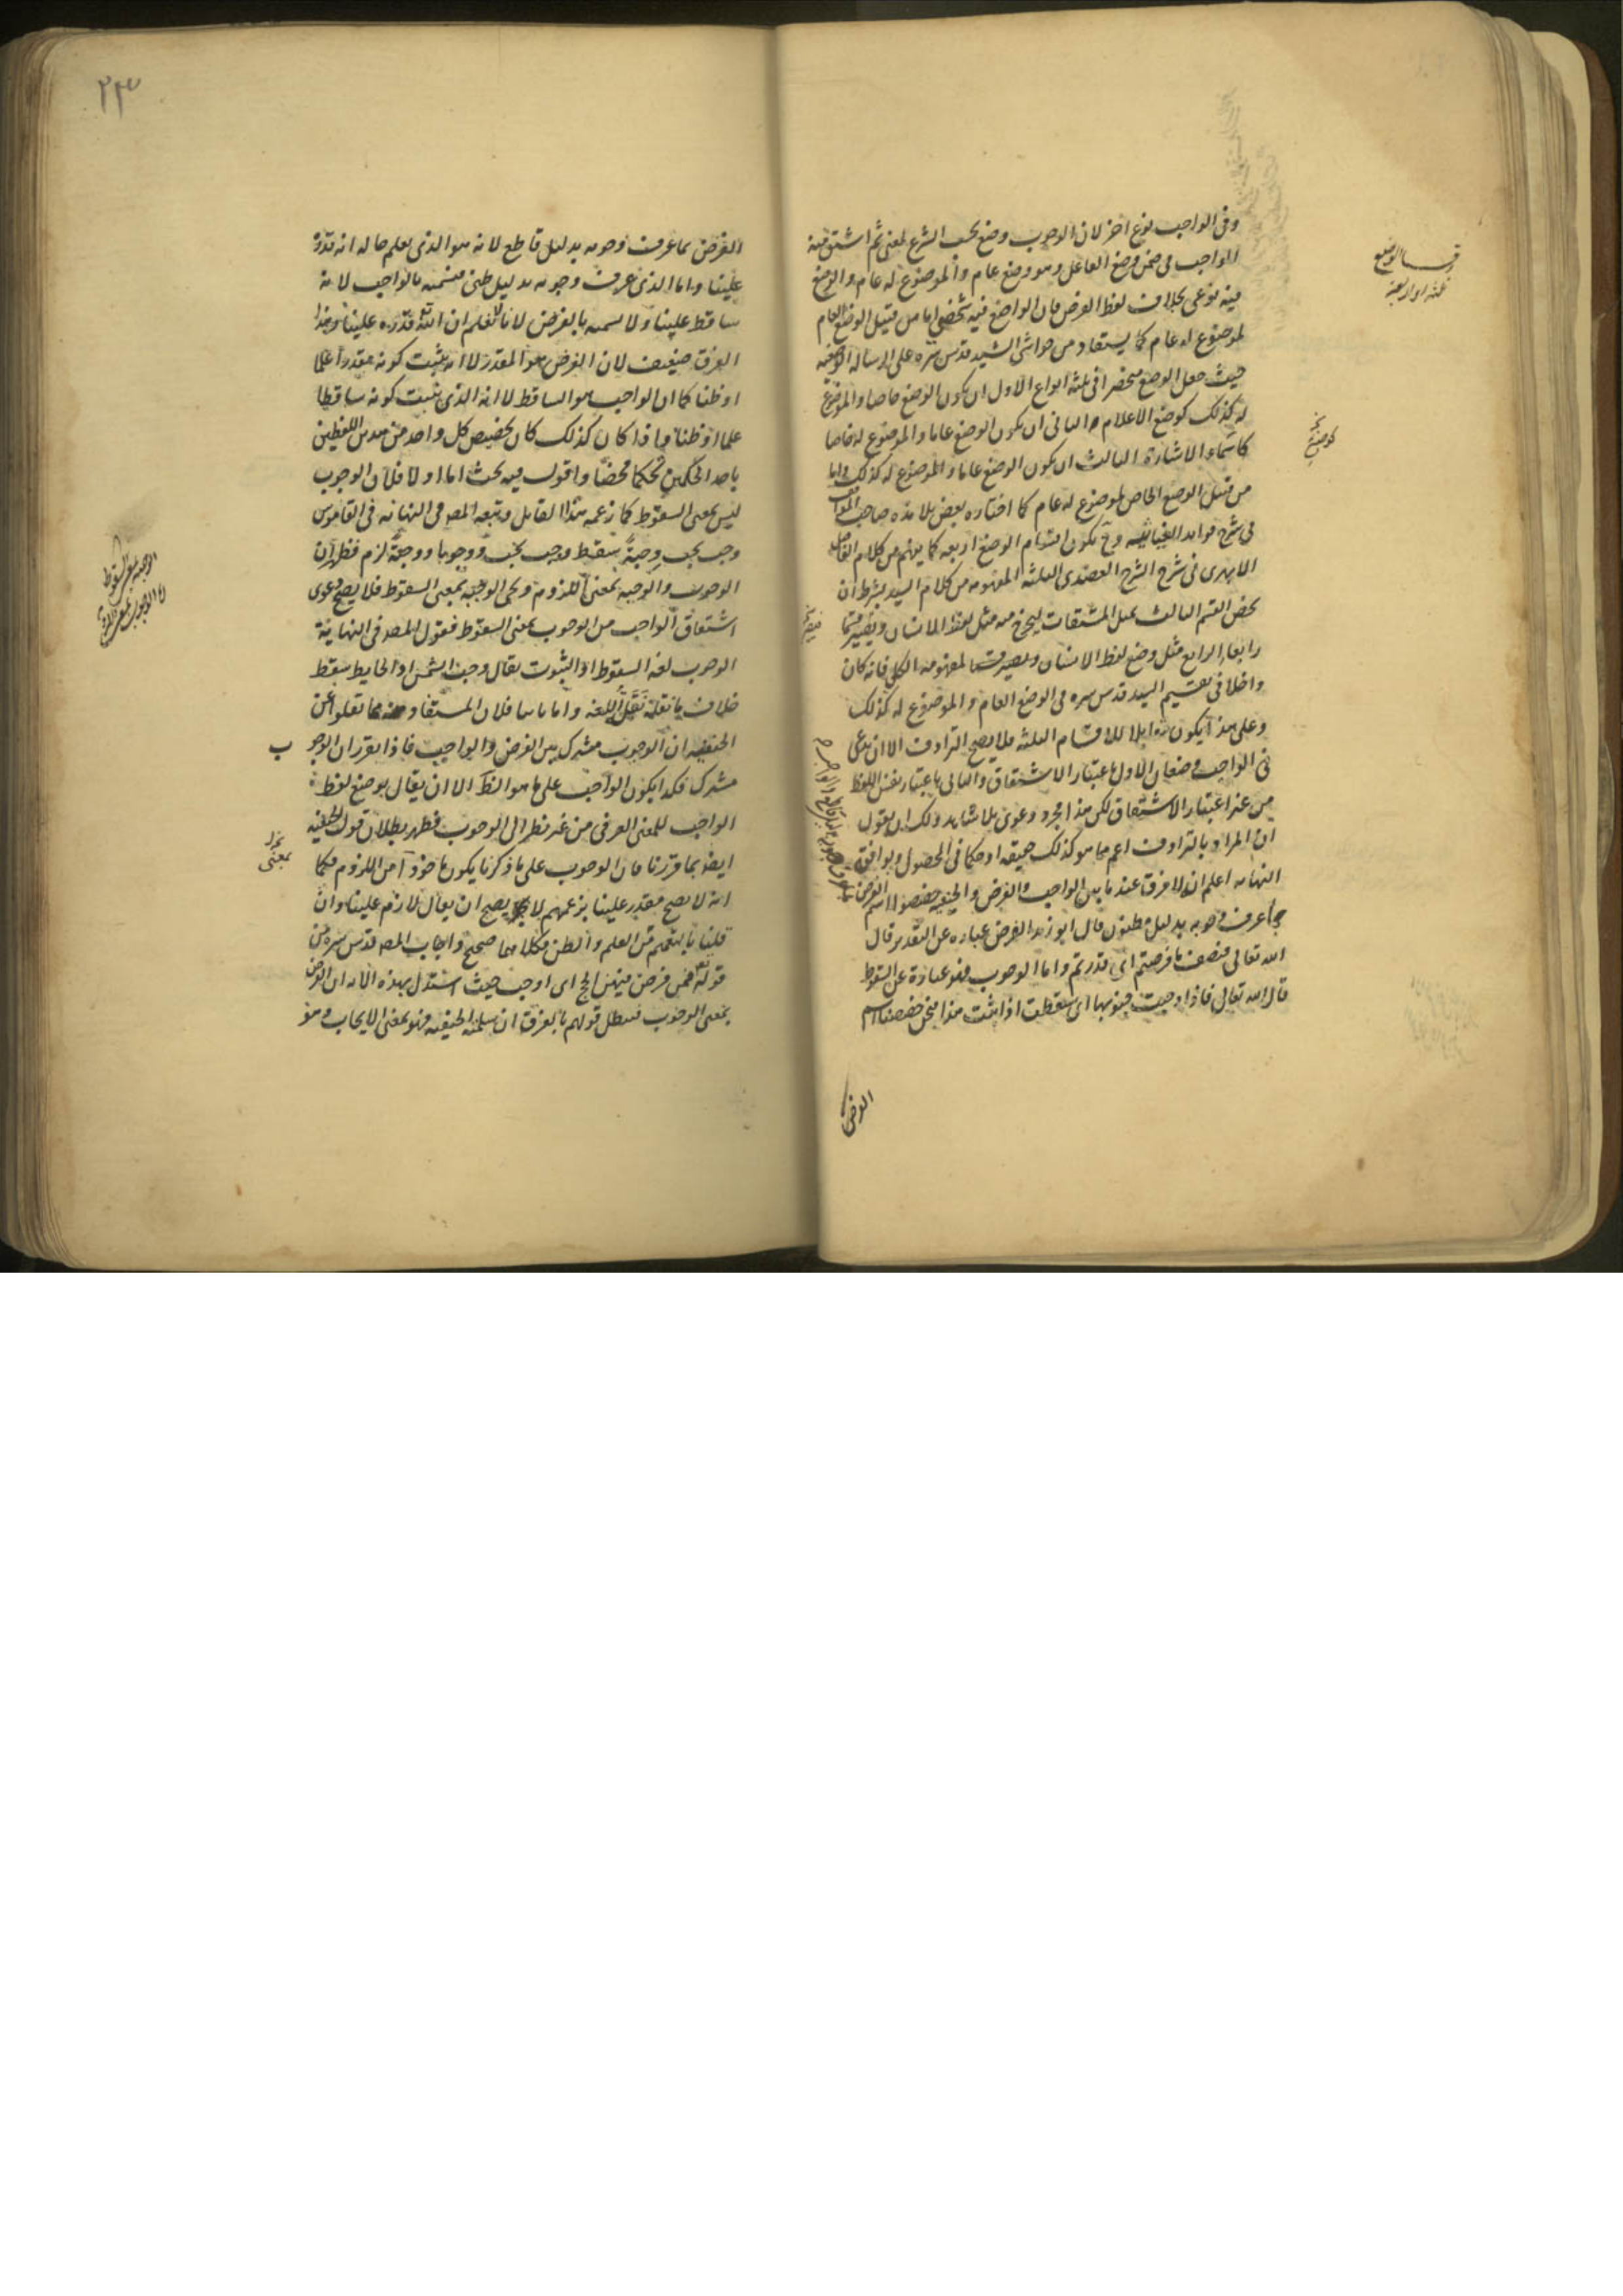 وفى الواجب نوع اخر لان الوجوب وضع بحسب الشرع لمعنى ثم اشتق منه
الواجب فى ضمن وضع الفاعل وهو وضع عام والموضوع له عام والوضع
فيه نوعى بخلاف لفظ الفرض فان الواضع فيه شخصى اما من قبيل الوضع العام
لموضوع له عام كما يستفاد من حواشى السيد قدس سره على الرسالة الوضعيه
حيث جعل الوضع منحصرا فى ثلثة انواع الاول ان يكون الوضع خاصا والموضوع
له كذلك كوضع الاعلام والثانى ان يكون الوضع عاما والموضوع له خاصا
كاسماء الاشارة الثالث ان يكون الوضع عاما والموضوع له كذلك واما
من قبيل الوضع الخاص لموضوع له عام كما اختاره بعض تلامذه صاحب المواقف
فى شرح فوايد الغياثيه وح يكون اقسام الوضع اربعه كما يفهم من كلام الفاضل
الابهرى فى شرح الشرح العضدى الثلثة المفهومه من كلام السيد بشرط ان
يخص القسم الثالث بمثل المشتقات ليخرج منه مثل لفظ الانسان ويصير قسما
رابعا الرابع مثل وضع لفظ الانسان لمفهومه الكلى فانه كان
داخلا فى تقسيم السيد قدس سره فى الوضع العام والموضوع له كذلك
وعلى هذا يكون للاقسام الثلثه فلا يصح الترادف الا ان يدعى
فى الواجب وضعان الاول باعتبار الاشتقاق والثانى باعتبار نفس اللفظ
من غير اعتبار الاشتقاق لكن هذا مجرد دعوى بلا شاهد ولك ان تقول
ان المراد بالترادف اعم مما هو كذلك حقيقه او حكما فى الحصول ويوافق
النهايه اعلم ان لا فرق عندنا بين الواجب والفرض والحنفيه خصصوا اسم الفرض
بما عرف وجوبه بدليل مظنون قال ابو زيد الفرض عباره عن التقدير قال
الله تعالى فنصف ما فرضتم اى قدرتم واما الوجوب فهو عبارة عن السقوط
قال الله تعالى فاذا وجبت جنوبها اى سقطت اذا ثبت هذا فنحن خصصنا اسم
الفرض
الوضع
ثلثه او اربعة
كوضع
الفرض بما عرفت وجوبه بدليل قاطع لانه هو الذى يعلم حاله انه قدره
علينا واما الذى عرف وجوبه بدليل ظنى فنسميه بالواجب لانه
ساقط علينا ولا نسميه بالفرض لانا لا نعلم ان الله قدره علينا وهذا
الفرق ضعيف لان الفرض هو المقدر لا انه يثبت كونه مقدرا علما
او ظنا كما ان الواجب هو الساقط لا انه الذى يثبت كونه ساقطا
علما او ظنا واذا كان كذلك كان تخصيص كل واحد من هذين اللفظين
باحد الحكمين تحكما محضا واقول فيه بحث اما اولا فلان الوجوب
ليس بمعنى السقوط كما زعمه هذا القايل وتبعه المصـ فى النهايه فى القاموس
وجب يجب وجبة سقط ووجب يجب وجوبا ووجبة لزم فظهر ان
الوجوب والوجبه بمعنى اللزوم ويجى الوجبه بمعنى السقوط فلا يصح دعوى
اشتقاق الواجب من الوجوب بمعنى السقوط فقول المصـ فى النهاية
الوجوب لغه السقوط او الثبوت يقال وجبت الشمس او الحايط سقط
خلاف ما نقله نقل اللغه واما ثانيا فلان المستفاد مما نقلوا عن
الحنفيه ان الوجوب مشترك بين الفرض والواجب فاذا تقرر ان الوجو
ب
مشترك فكذا يكون الواجب على ما هو الظ الا ان يقال بوضع لفظ
الواجب للمعنى العرفى من غير نظر الى الوجوب فظهر بطلان قول الحنفيه
ايضا بما قررنا فان الوجوب على ما ذكرنا يكون ماخوذا من اللزوم فكما
انه لا يصح مقدر علينا بزعمهم لا يصح ان يقال لازم علينا وان
قلنا باعم من العلم والظن فكلاهما صحيح واجاب المصـ قدس سره من
قوله تعـ فمن فرض فيهن الحج اى اوجب حيث استدل بهذه الايه ان الفرض
بمعنى الوجوب فبطل قولهم بالفرق ان سلمه الحنفيه فهو بمعنى الايجاب وهو
الوجبه بمعنى السقوط
والوجوب بمعنى اللزوم
بمعنى
٢٣